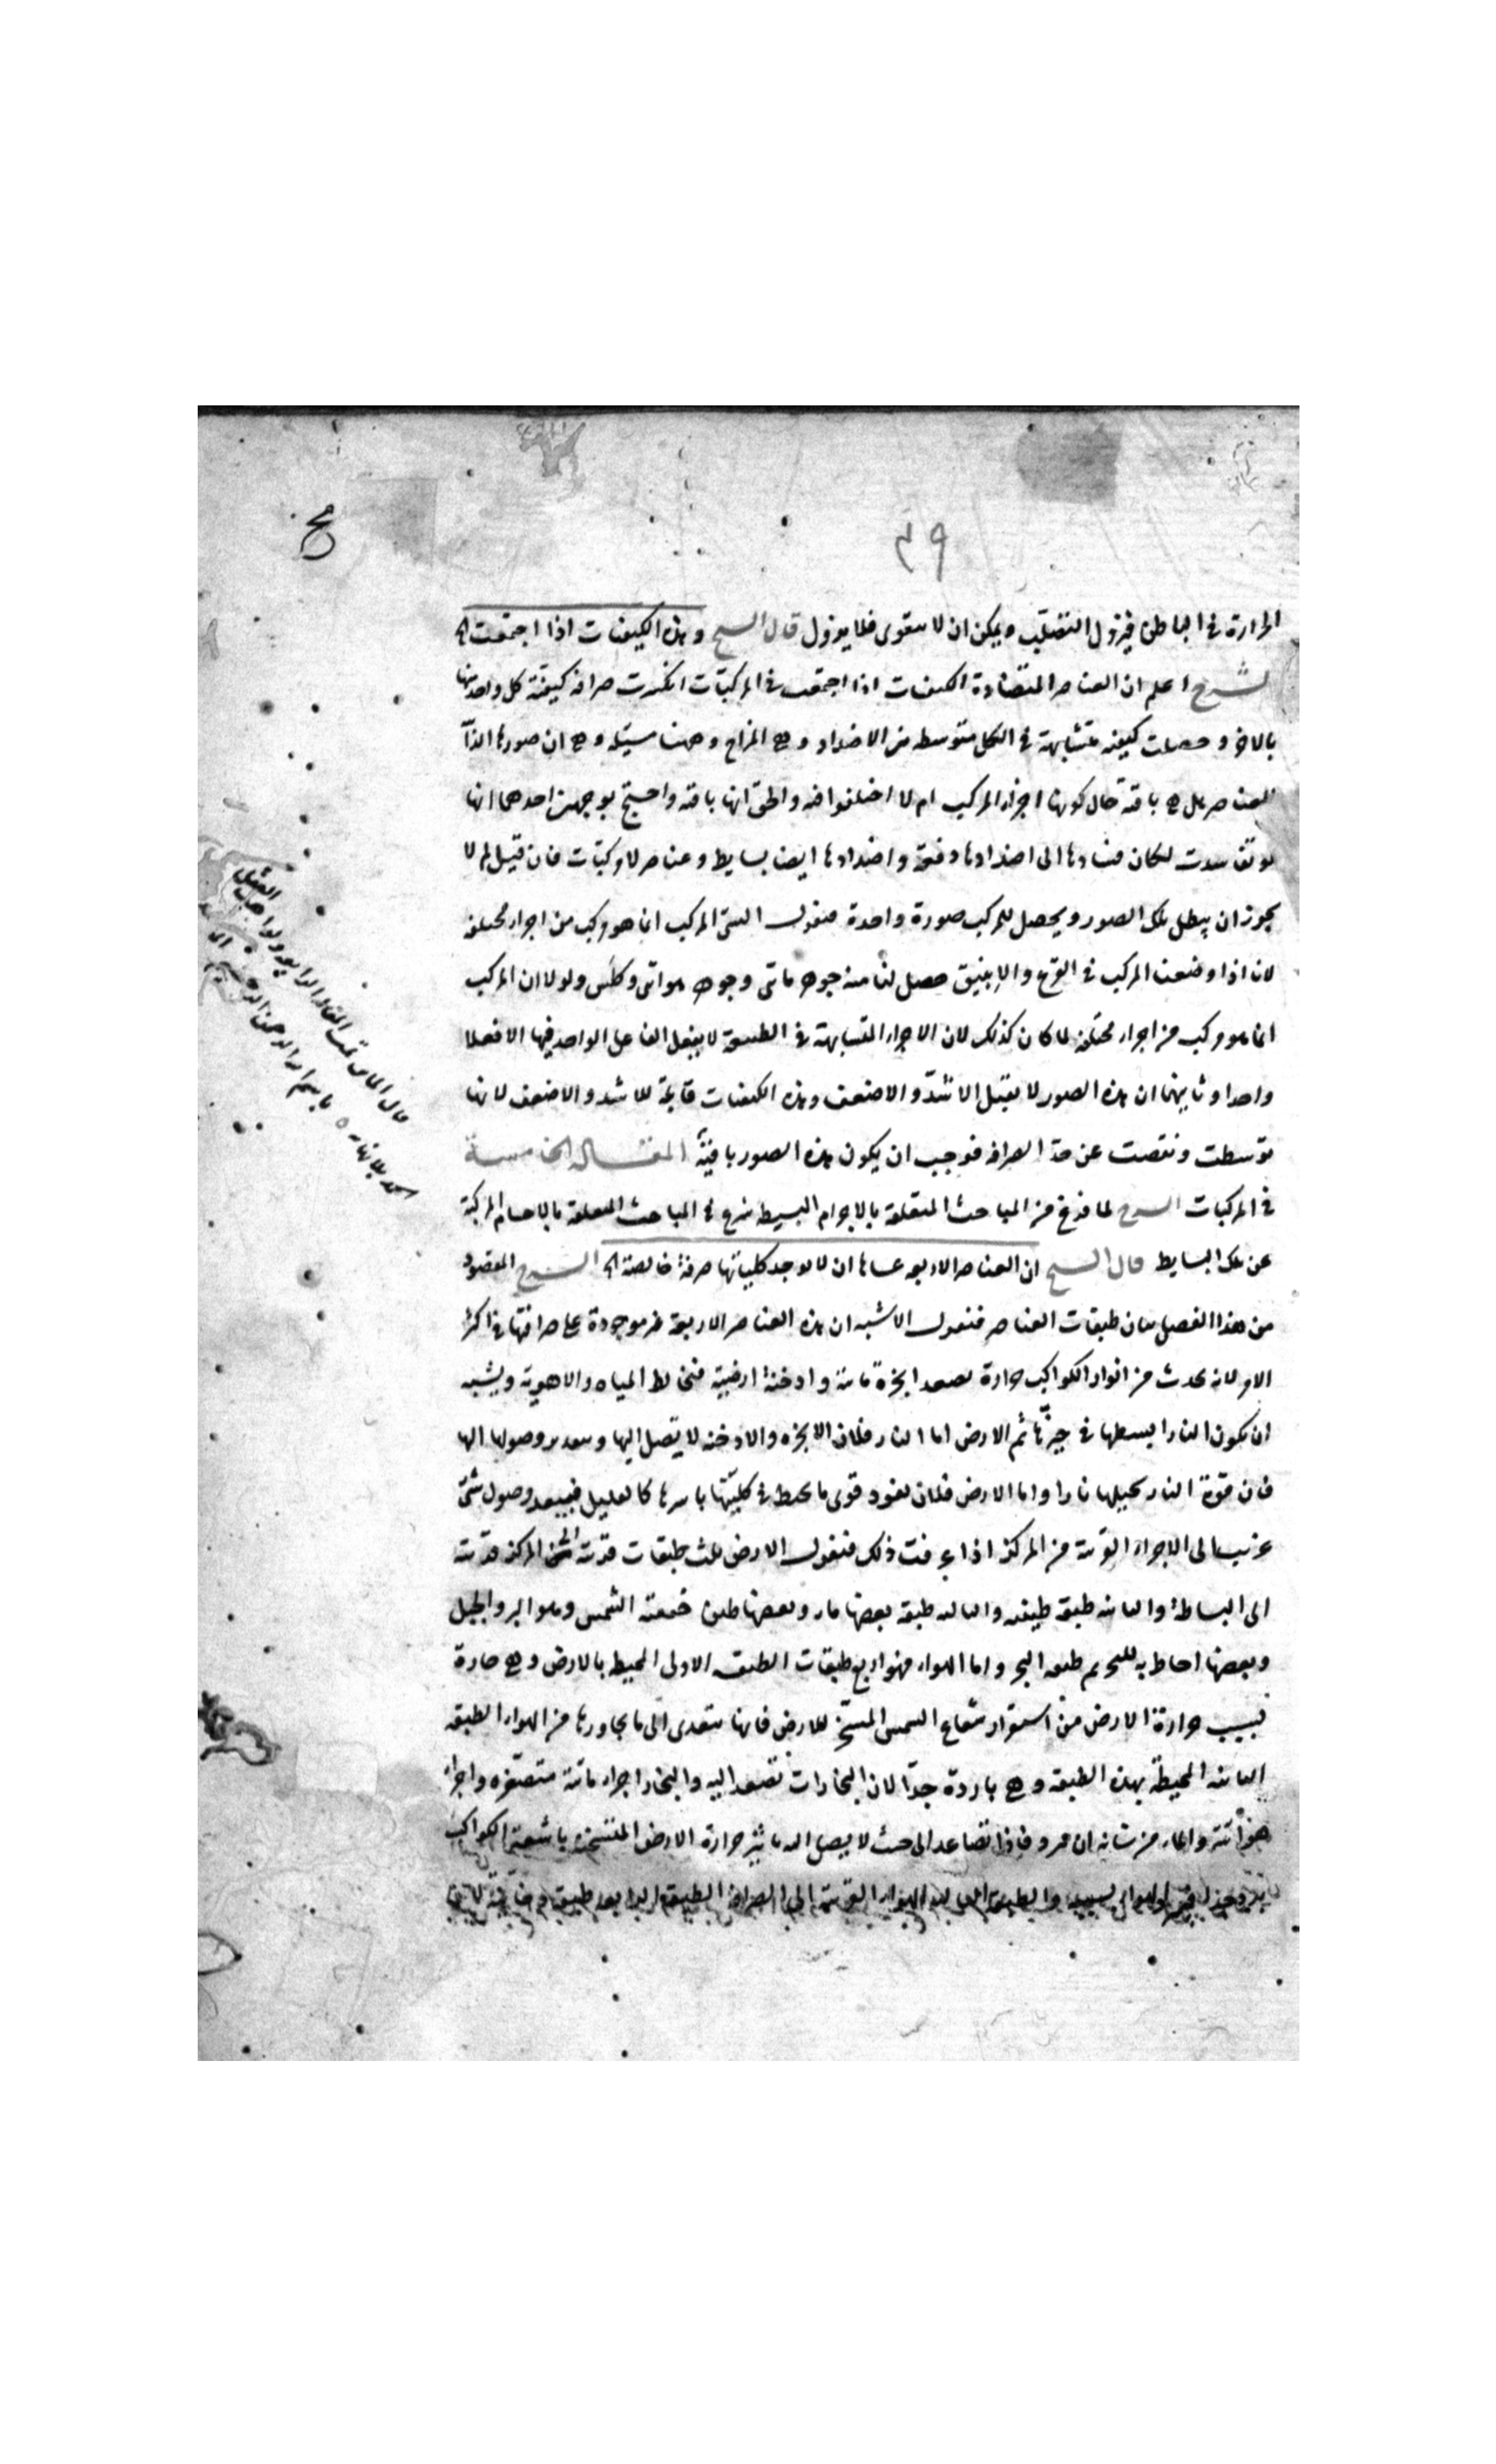 ٣٩
الحرارة في الباطن فيزول التغلب ويمكن ان لا يقوى فلا يزول قال الشيخ وهذه الكيفيات اذا اجتمعت الخ
الشرح اعلم ان العناصر المتضادة الكيفيات اذا اجتمعت في المركبات انكسرت صرافة كيفية كل واحد منها
بالاخر وحصلت كيفية متشابهة في الكل متوسطة من الاضداد وهي المزاج وههنا مسئلة وهي ان صورها
العناصر هل هي باقية حال كونها اجزاء المركب ام لا اختلفوا فيه والحق انها باقية واحتج بوجهين احدهما انها
لو تفاسدت لكان فسادها الى اضدادها دفعة واضدادها ايضا بسايط وعناصر لا مركبات فان قيل لم لا
يجوز ان يبطل تلك الصور ويحصل للمركب صورة واحدة فنقول الشئ المركب انما هو مركب من اجزاء مختلفة
لانا اذا وضعنا المركب في القرع والانبيق حصل لنا منه جوهر مائى وجوهر هوائى وكلس ولولا ان المركب
انما هو مركب من اجزاء مختلفة لما كان كذلك لان الاجزاء المتشابهة في الطبيعة لا يفعل الفاعل الواحد فيها الا فعلا
واحدا وثانيهما ان هذه الصور لا يقبل الاشد والاضعف وهذه الكيفيات قابلة للاشد والاضعف لانها
توسطت ونقصت عن حد الصرافة فوجب ان يكون هذه الصور باقية المقالة الخامسة
في المركبات الشرح لما فرغ من المباحث المتعلقة بالاجرام البسيطة شرع في المباحث المتعلقة بالاجسام المركبة
عن تلك البسايط قال الشيخ ان العناصر الاربعة عساها ان لا يوجد كلياتها صرفة خالصة الخ الشرح المقصود
من هذا الفصل بيان طبقات العناصر فنقول الاشبه ان هذه العناصر الاربعة غير موجودة على صرافتها في اكثر
الامر لانه يحدث من انوار الكواكب حرارة تصعد ابخرة مائية وادخنة ارضية فتخالط المياه والاهوية ويشبه
ان يكون النار ابسطها في حيزها ثم الارض اما النار فلان الابخرة والادخنة لا يتصل اليها وبتقدير وصولها اليها
فان قوة النار تحيلها نارا واما الارض فلان نفوذ قوى ما يحيط في كليتها باسرها كالقليل فيبعد وصول شئ
غريب الى الاجزاء القريبة من المركز اذا عرفت ذلك فنقول الارض ثلث طبقات قريبة الى المركز قريبة
الى البساطة والثانية طبقة طينية والثالثة طبقة بعضها ماء وبعضها طين جففته الشمس وهو البر والجبل
وبعضها احاط به البحر ثم طبقة البحر واما الهواء فهو اربع طبقات الطبقة الاولى المحيط بالارض وهي حارة
بسبب حرارة الارض من استقرار شعاع الشمس المسخن للارض فانها يتعدى الى ما يجاورها من الهواء الطبقة
الثانية المحيطة بهذه الطبقة وهي باردة جدا لان البخارات تتصعد اليه والبخار اجزاء مائية متصغرة واجزاء
هوائية والماء من شانه ان يبرد فاذا تصاعد الى حيث لا يصل اليه تاثير حرارة الارض المتسخنة باشعة الكواكب
والطبقة الثالثة الهواء القريبة الى الصرافة الطبقة الرابعة طبقة دخانية
قال الماتن تمت المقالة الرابعة
بسم الله الرحمن الرحيم